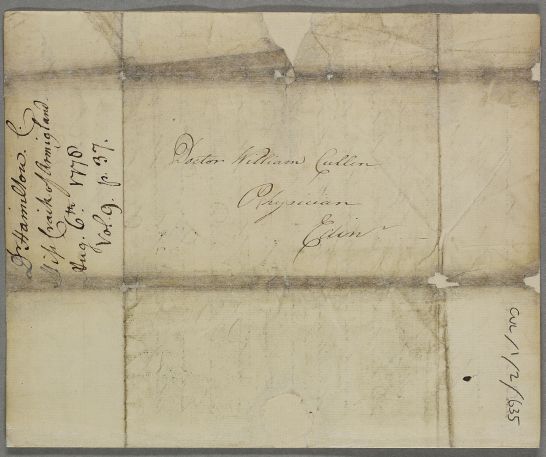 Doctor William Cullen
Physician
Edinr
Dr Hamilton. C
Miss Craik of Armigland.
Aug. 6th 1778
Vol. 9. p. 37.
CUL/1/2/635